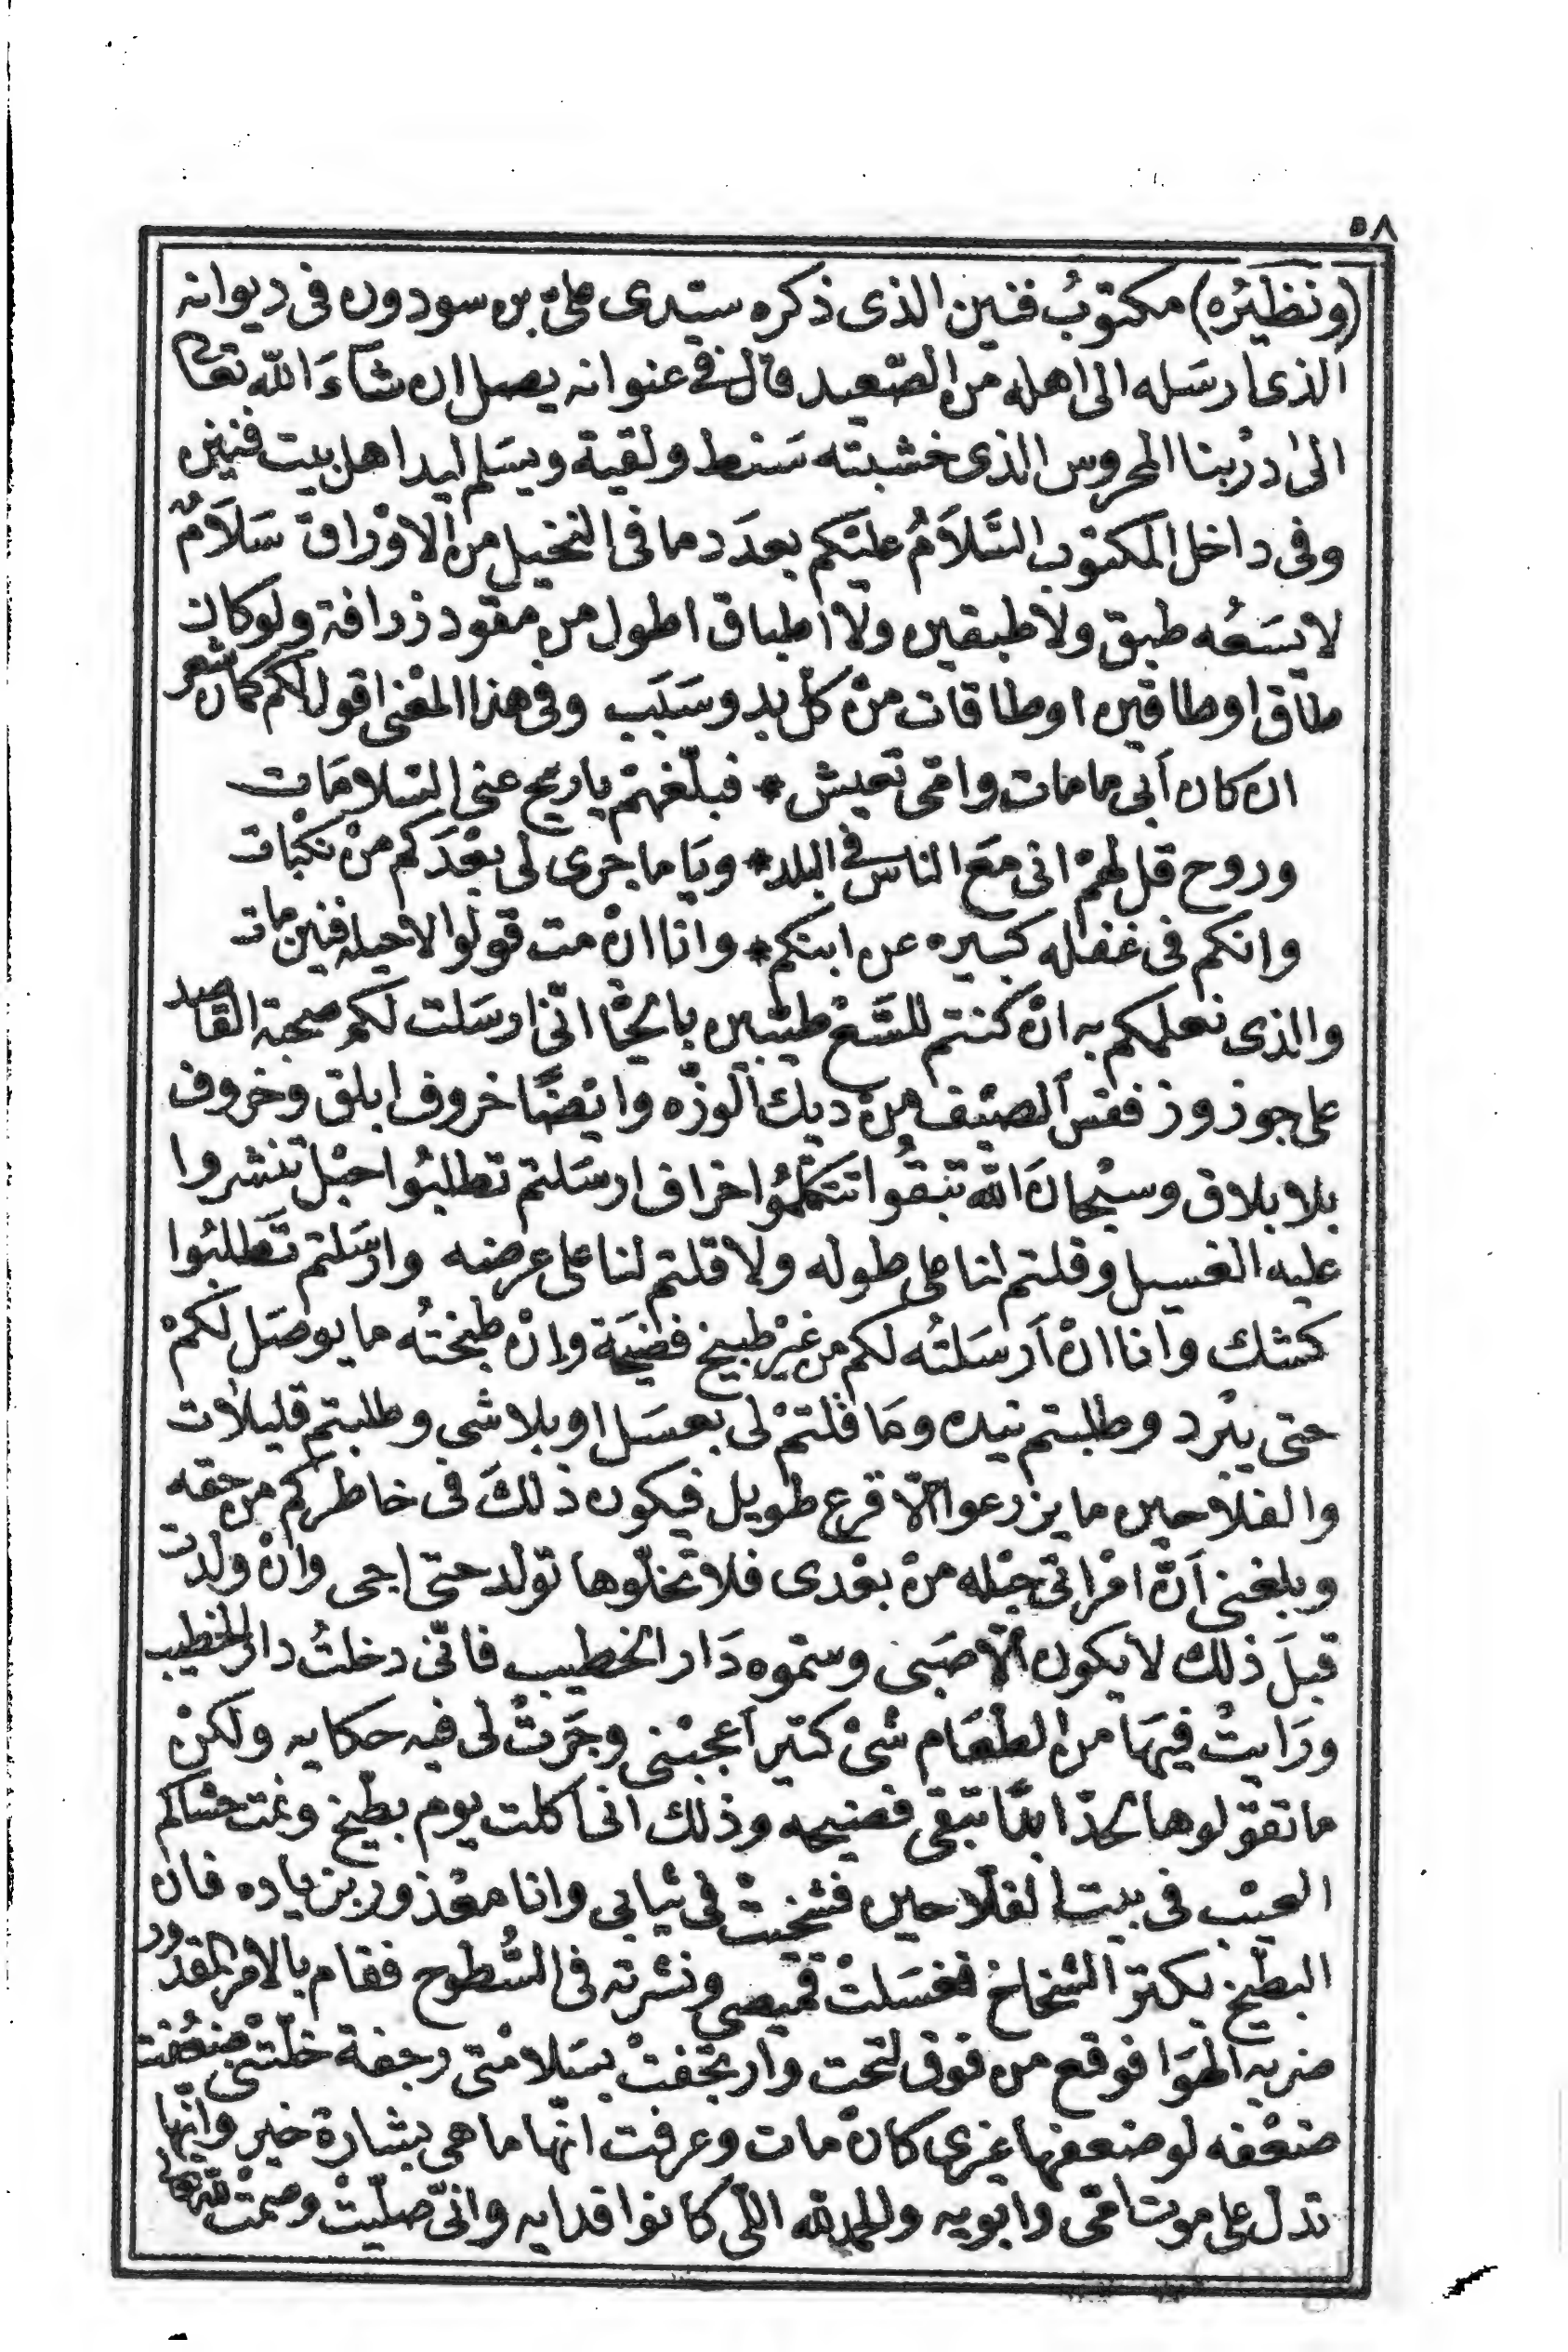 ٥٨
(ونظيرُه) مكتوبُ فنين الذى ذكره سيّدى علىّ بن سودون فى ديوانه
الذى ارسَله الى اهله من الصّعيد قال فى عنوانه يصل ان شآءَ الله تعالى
الىٰ درْبنا المحروس الذى خشبته سَنط ولقية ويسَلم ليد اهل بيت فنين
وفى داخل المكتوب السَّلاَمُ عليْكم بعدَد ما فى النخيل من الاوْراق سَلاَمٌ
لا يسَعُه طبق ولا طبقين ولا اطباق اطول من مقود زرافة ولو كان
طاق او طاقين او طاقات منْ كلّ بد وسَبَب وفى هذا المعْنى اقول لكم كمان شعر
ان كان اَبى ما مات وامّى تعيش * فبلّغهمْ يا ريح عنى السّلامَات
وروح قل لهمْ انى مَعَ الناس فى البلد * ويَا ما جرى لى بعْدَكم منْ نكبْات
وانكم فى غفله كبيره عن ابنكم * وانا انْ مت قولوا لا حيله فنين مات
والذى نعلمكم به انْ كنتم للسَّخ طيّبين بالحْيا انّى ارسَلت لكم صحبة القاصد
على جوز وز فقس الصيْف منْ ديك الوزّه وايْضًا خروف ابلق وخروف
بلا بلاق وسبْحانَ الله تبْقُوا تتكلّمُوا خراف ارسَلتم تطلبُوا حبْل تنشروا
عليه الغسيل وقلتم لنا على طوله ولا قلتم لنا على عرضه وارسَلتم تَطلبُوا
كشك وانا انْ اَرسَلتُه لكم من غيْر طبيخ فضيحَة وإنْ طبخْتُه ما يوصَل لكمْ
حتى يبْرد وطلبتم نيده ومَا قلتمْ لى بعسَل او بلا شى وطلبتم قليلاٰت
والفلاّحين ما يزرعوا الاّ قرع طويل فيكون ذلكَ فى خاطركم من حقه
وبلغنى اَنّ امْراتى حبْله منْ بعْدى فلا تخلّوها تولد حتى اجى وانْ ولدت
قبلَ ذلك لا يكون الاّ صَبى وسَمّوه دَار الخطيب فانّى دخلتُ دار الخطيب
ورَايتُ فيهَا من الطعَام شىْ كتير اَعجبْنى وجَرَتْ لى فيه حكايه ولكنْ
ما تقولوها لحدّ ابدًا تبقى فضيحه وذلك انى اكلت يوم بطّيخ ونمت حشاكم
العيْب فى بيت الفلاّحين فشخيتْ فى ثيابى وانا معْذور بزياده فان
البطّيخ يكتر الشخاخ فغسَلتْ قميصى ونشرته فى السُّطوح فقام بالامر المقدور
ضربه الهوَا فوقع من فوق لتحت وارتجفتْ بسَلامْتى رجفة خلّتنىْ ضعُفت
ضعْفه لو ضعفها غيْرى كانْ مات وعرفت انّها ما هى بشارة خير وانّها
تدل على موت امّى وابويه والحمد لله اللّى كانوا قدايه وانّى صلّيْت وصمْت للّه تعالى